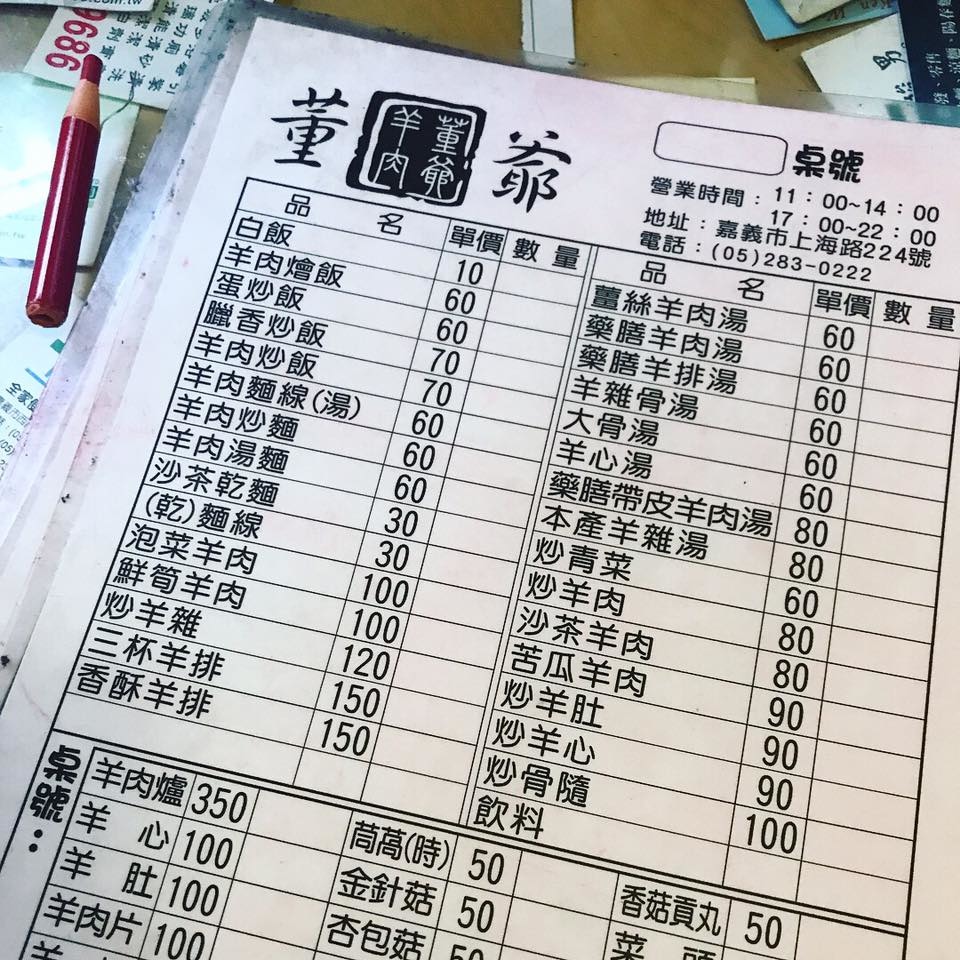 董 董爺羊肉 爺
桌號
營業時間：11：00~14：00
17：00~22：00
地址：嘉義市上海路224號
電話：(05)283-0222
品 名 單價 數量
白飯 10
羊肉燴飯 60
蛋炒飯 60
臘香炒飯 70
羊肉炒飯 70
羊肉麵線(湯) 60
羊肉炒麵 60
羊肉湯麵 60
沙茶乾麵 30
(乾)麵線 30
泡菜羊肉 100
鮮筍羊肉 100
炒羊雜 120
三杯羊排 150
香酥羊排 150
品 名 單價 數量
薑絲羊肉湯 60
藥膳羊肉湯 60
藥膳羊排湯 60
羊雜骨湯 60
大骨湯 60
羊心湯 60
藥膳帶皮羊肉湯 80
本產羊雜湯 80
炒青菜 60
炒羊肉 80
沙茶羊肉 80
苦瓜羊肉 90
炒羊肚 90
炒羊心 90
炒骨隨 100
飲料
桌號：
羊肉爐 350
羊心 100
羊肚 100
羊肉片 100
茼萵(時) 50
金針菇 50
杏包菇 50
香菇貢丸 50
菜頭
9686
com.tw